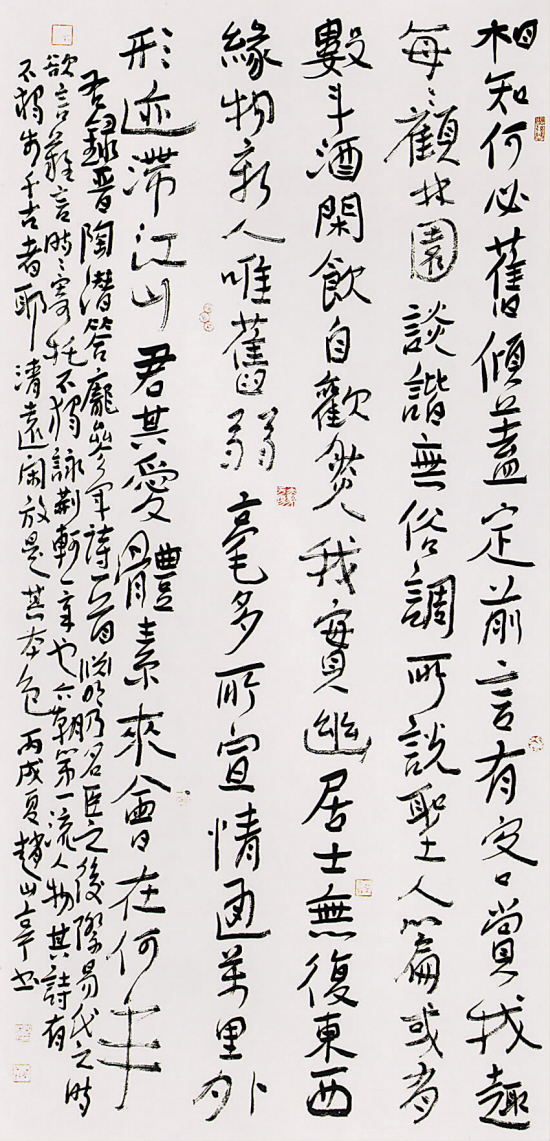 相知何必舊傾蓋定前言有客賞我趣
每々顧林園談諧無俗調所說聖人篇或有
數斗酒閑飲自歡然我實幽居士無復東西
緣物新人唯舊弱毫多所宣情通萬里外
形迹滯江山君其愛體素來會在何年
右錄晉陶潛答龐參軍詩一首淵明乃名臣之後際易代之時
欲言難言時々寄托不獨詠荊軻一章也六朝第一流人物其詩有
不獨步千古者耶清遠閑放是其本色丙戌夏趙山亭書